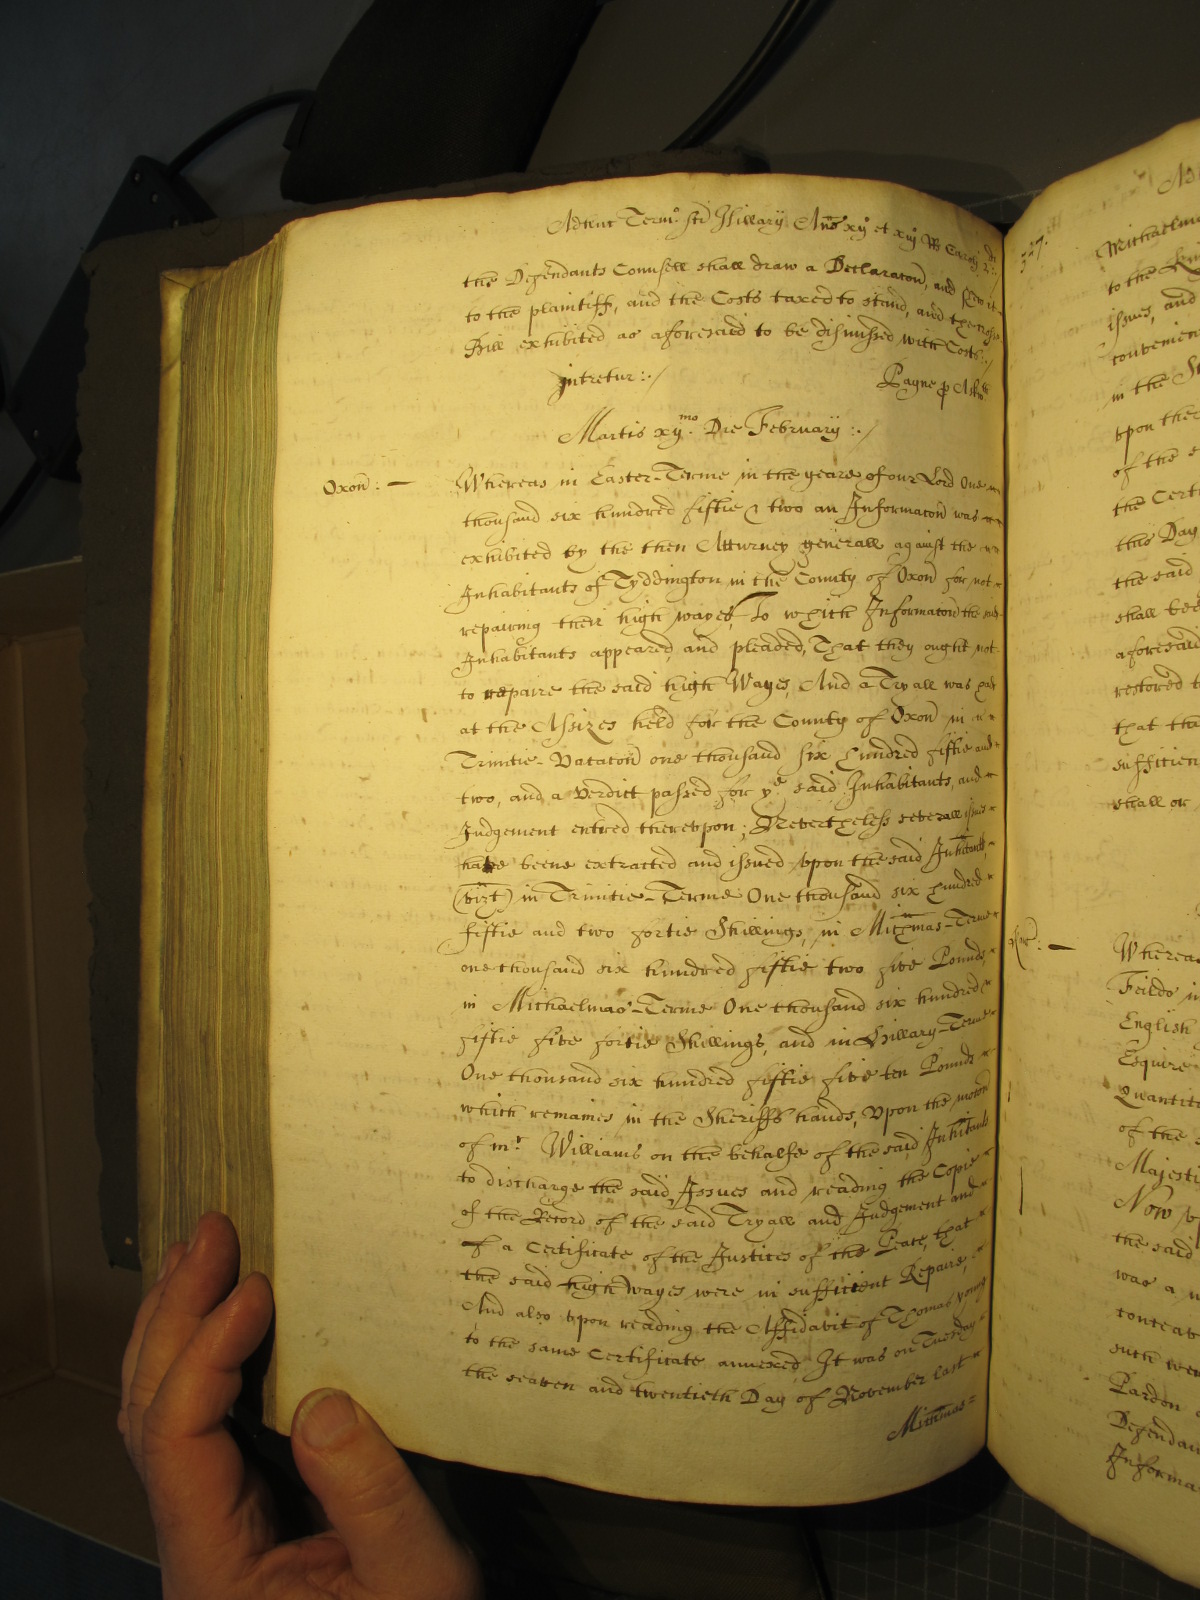 Adhuc Term.o Sci Hillary Anno xij et xiij Rs Caroli 2:
the Defendants Counsell shall draw a Declaracon, and
to the plaintiff, and the Costs taxed to stand, and the
Bill exhibited as aforesaid to be dismissed with Costs:/
intretur:/ Payne p
Martis xijmo. Die February:/
Oxon: — Whereas in Easter-Terme in the yeare of our Lord One
thousand six hundred fiftie & two an Informacon was
exhibited by the then Atturney generall against the
Inhabitants of Tyddington in the County of Oxon for not
repairing their high wayes, To which Informacon the said
Inhabitants appeared, and pleaded, That they ought not
to repaire the said high Wayes, And a Tryall was had
at the Assizes held for the County of Oxon in
Trinitie-Vacacon one thousand six hundred fiftie and
two, and a Verdict passed for ye said Inhabitants, and
Judgement entred thereupon; Nevertheless severall issues
have beene extracted and issued vpon the said Inhitants,
(vizt) in Trinitie-Terme One thousand six hundred
fiftie and two fortie Shillings, in Michmas-Terme
one thousand six hundred fiftie two five Pounds,
in Michaelmas-Terme One thousand six hundred
fiftie five fortie Shillings, and in Hillary-Terme
One thousand six hundred fiftie five ten Pounds
which remaines in the Sheriffs hands, Vpon the mocon
of mr. Williams on the behalfe of the said Inhitants
to discharge the said Issues and reading the Copie
of the Record of the said Tryall and Judgement and
of a Certificate of the Justices of the Peace, that
the said high wayes were in sufficient Repaire,
And also vpon reading the Affidavit of Thomas young
to the same Certificate annexed It was on Tuesday
the seaven and twentieth Day of November last
Michmas=
527.
Michaelmas
to the
issues, and
convenient
in the
vpon the
of the
the Certi
this Day
the said
shall bee
aforesaid
restored t
that the
sufficien
shall or
Whereas
Feilds in
English
Esquire
Quantit
of the
Majesti
Now
the said
was a
conceav
such wer
Pardon
Defendan
Informa